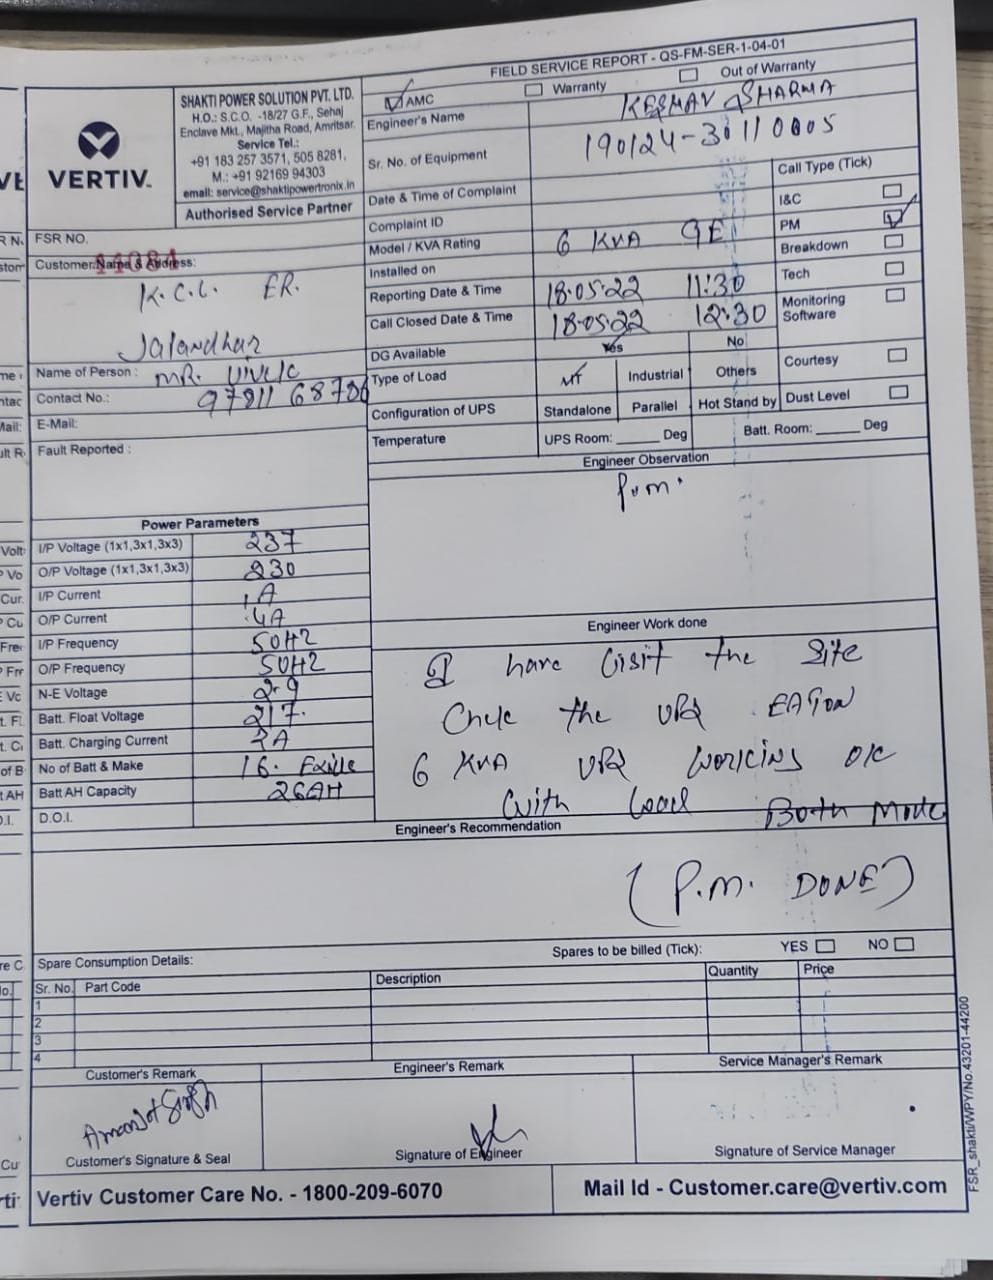 FIELD SERVICE REPORT - QS-FM-SER-1-04-01
AMC Warranty Out of Warranty
VERTIV
SHAKTI POWER SOLUTION PVT. LTD.
H.O.: S.C.O. -18/27 G.F., Sehaj
Enclave Mkt., Majitha Road, Amritsar.
Service Tel.:
+91 183 257 3571, 505 8281,
M.: +91 92169 94303
email: service@shaktipowertronix.in
Authorised Service Partner
Engineer's Name KESHAV SHARMA
Sr. No. of Equipment
Date & Time of Complaint
Complaint ID
Model / KVA Rating 6 KVA
Installed on
Reporting Date & Time 18.05.22 11:30
Call Closed Date & Time 18.05.22 12:30
DG Available Yes No
Type of Load Industrial Others
Configuration of UPS Standalone Parallel Hot Stand by
Temperature UPS Room: ______ Deg Batt. Room: ______ Deg
Call Type (Tick)
I&C
PM
Breakdown
Tech
Monitoring
Software
Courtesy
Dust Level
FSR NO.
Customer Name & Address:
K.C.L. ER.
Jalandhar
Name of Person : MR.
Contact No.:
E-Mail:
Fault Reported :
Power Parameters
I/P Voltage (1x1,3x1,3x3) 237
O/P Voltage (1x1,3x1,3x3) 230
I/P Current
O/P Current
I/P Frequency 50HZ
O/P Frequency 50HZ
N-E Voltage 2.9
Batt. Float Voltage 217.
Batt. Charging Current 2A
No of Batt & Make 16.
Batt AH Capacity 26AH
D.O.I.
Engineer Observation
P.M.
Engineer Work done
I have Visit the Site
Chek the UPS EATON
6 KVA UPS Working OK
With Load Both Mode
Engineer's Recommendation
(P.M. DONE)
Spare Consumption Details: Spares to be billed (Tick): YES NO
Sr. No. Part Code Description Quantity Price
1
2
3
4
Customer's Remark Engineer's Remark Service Manager's Remark
Amanjot Singh
Customer's Signature & Seal Signature of Engineer Signature of Service Manager
Vertiv Customer Care No. - 1800-209-6070 Mail Id - Customer.care@vertiv.com
FSR_shakti/WPY/No.43201-44200